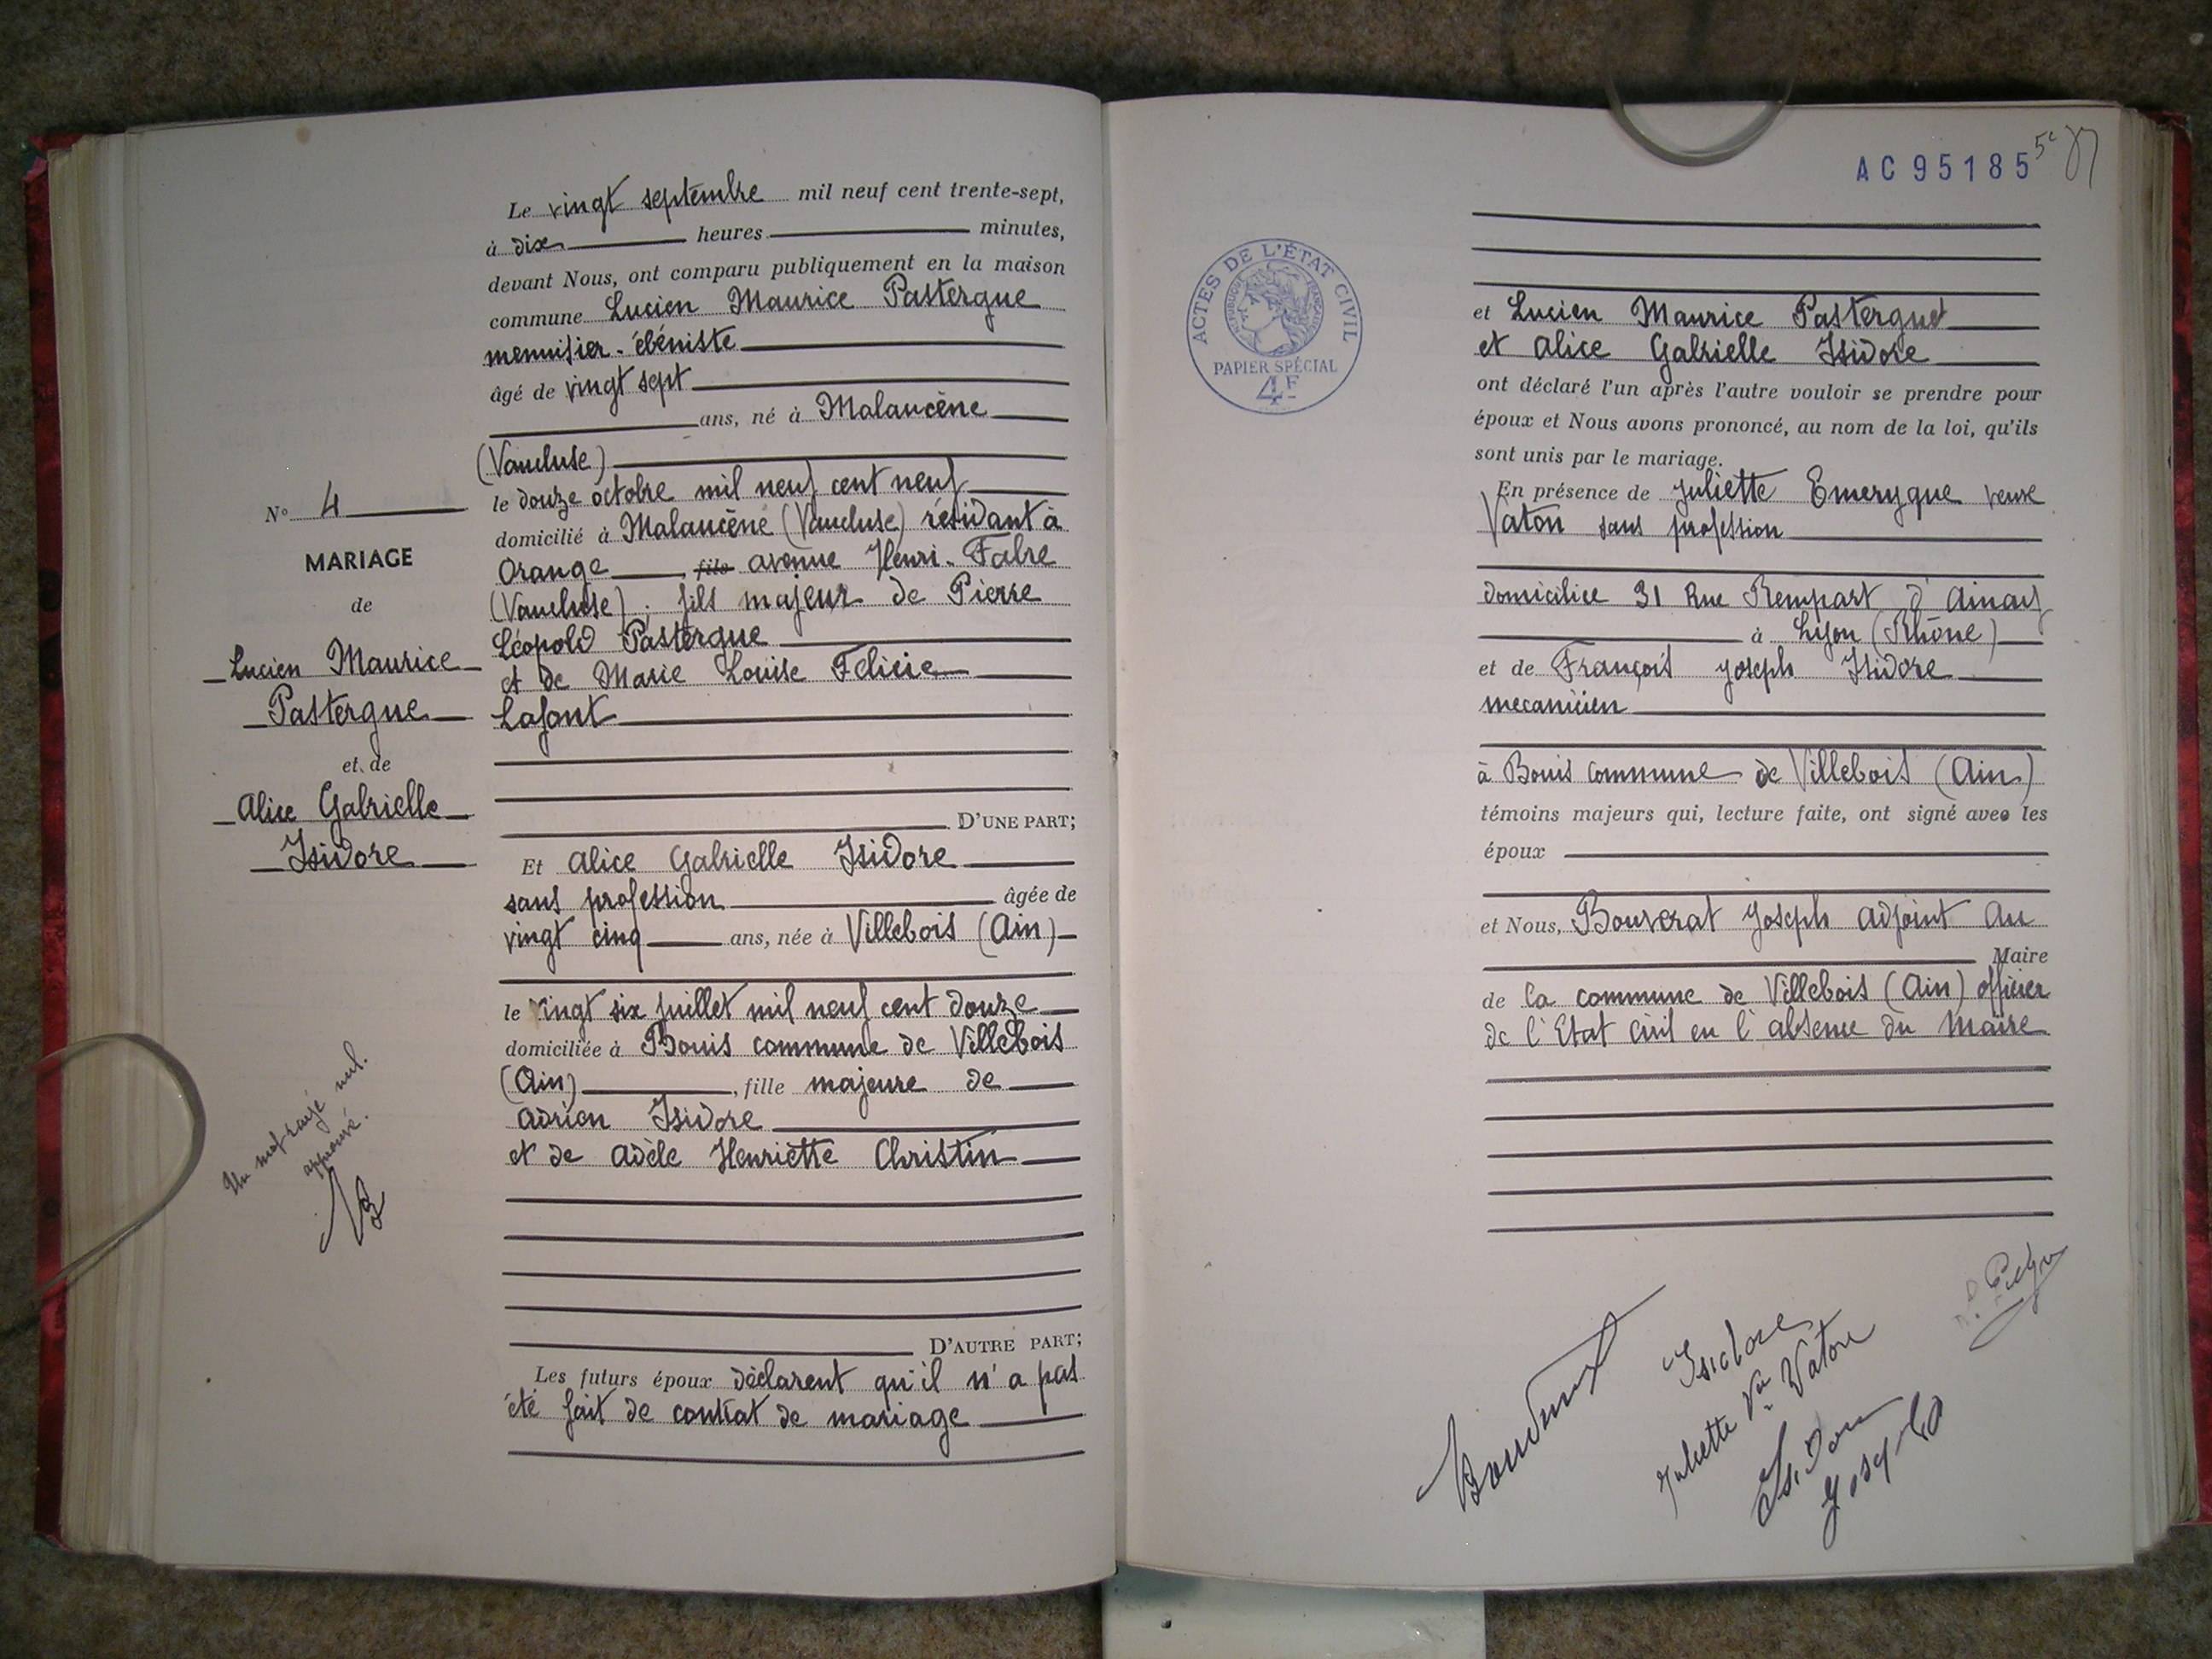 Le vingt septembre mil neuf cent trente-sept,
à dix heures minutes,
devant Nous, ont comparu publiquement en la maison
commune Lucien Maurice Pastergue
menuisier-ébéniste
âgé de vingt sept
ans, né à Malaucène
(Vaucluse)
le douze octobre mil neuf cent neuf
domicilié à Malaucène (Vaucluse) résidant à
Orange fils avenue Henri-Fabre
(Vaucluse); fils majeur de Pierre
Léopold Pastergue
et de Marie Louise Felicie
Lafont
D'UNE PART;
Et Alice Gabrielle Isidore
sans profession âgée de
vingt cinq ans, née à Villebois (Ain)
le vingt six juillet mil neuf cent douze
domiciliée à Bouis commune de Villebois
(Ain), fille majeure de
Adrien Isidore
et de Adèle Henriette Christin
D'AUTRE PART;
Les futurs époux déclarent qu'il n'a pas
été fait de contrat de mariage
N° 4
MARIAGE
de
Lucien Maurice
Pastergue
et de
Alice Gabrielle
Isidore
Un mot rayé nul.
approuvé.
AC95185
ACTES DE L'ÉTAT CIVIL
RÉPUBLIQUE FRANÇAISE
PAPIER SPÉCIAL
4F
et Lucien Maurice Pastergue
et Alice Gabrielle Isidore
ont déclaré l'un après l'autre vouloir se prendre pour
époux et Nous avons prononcé, au nom de la loi, qu'ils
sont unis par le mariage.
En présence de Juliette Emerygue veuve
Vaton sans profession
domicilice 31 Rue Rempart d'Ainay
à Lyon (Rhône)
et de François Joseph Isidore
mecanicien
à Bouis commune de Villebois (Ain)
témoins majeurs qui, lecture faite, ont signé avec les
époux
et Nous, Bouvrat Joseph adjoint au
Maire
de la commune de Villebois (Ain) officier
de l'Etat Civil en l'absence du Maire
Isidore
Juliette Vve Vaton
Isidore
Joseph